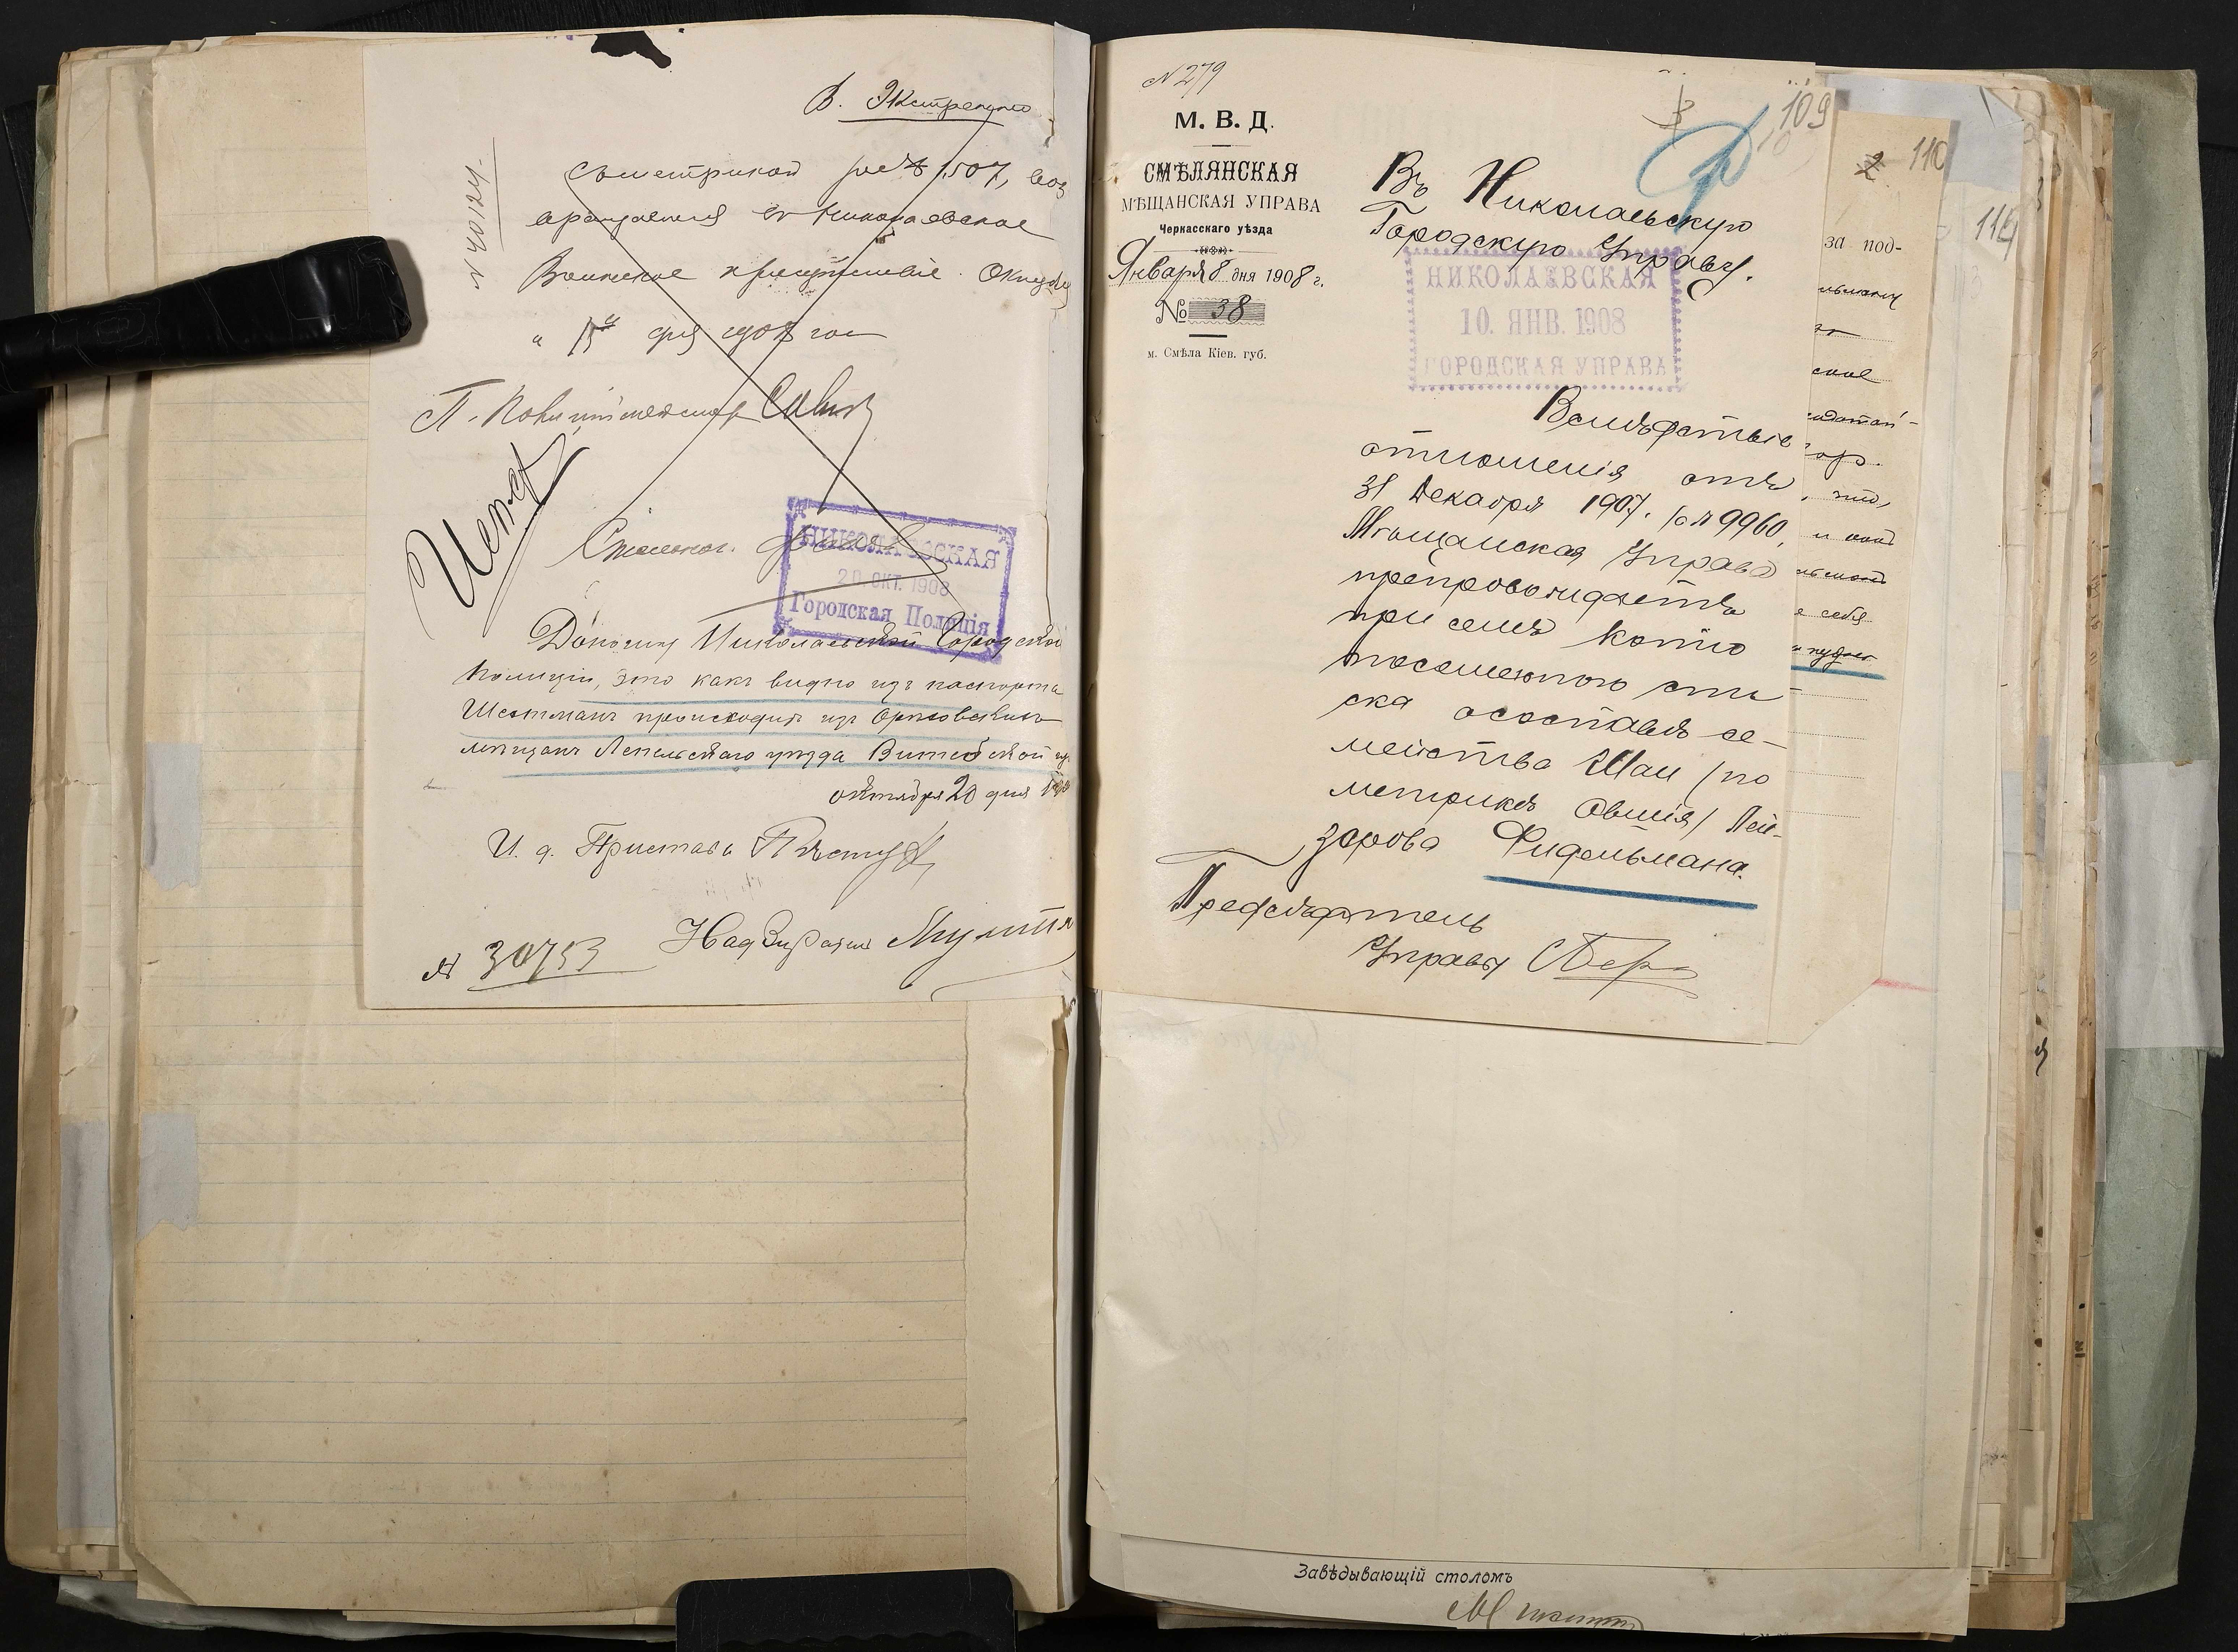 В. Экстренно
№ 40124
съ метрикой подъ 1507, воз
вращается въ Николаевское
Воинское присутствіе. Октября
" 15 " дня 1908 года
П. Полиціймейстер
Столонач.
НИКОЛАЕВСКАЯ
20 ОКТ. 1908
Городская Полиція
Доношу Николаевской Городской
Полиціи, что какъ видно изъ паспорта
Шестманъ происходитъ изъ Орѣховскихъ
мѣщанъ Лепельскаго уѣзда Витебской гу
октября 20 дня
И. д. Пристава
Надзиратель
№ 30753
№ 279
М. В. Д.
СМѢЛЯНСКАЯ
МѢЩАНСКАЯ УПРАВА
Черкасскаго уѣзда
Января 8 дня 1908 г.
№ 38
м. Смѣла Кіев. губ.
109
Въ Николаевскую
Городскую Управу.
НИКОЛАЕВСКАЯ
10. ЯНВ. 1908
ГОРОДСКАЯ УПРАВА
Вслѣдствіе
отношенія отъ
31 Декабря 1907 г. за № 9960,
Мѣщанская Управа
препровождаетъ
при семъ копію
посемейного спи-
ска о составѣ се-
мейства Шаи /по
метрикѣ Овшія/ Лей-
зорова Фидельмана.
Предсѣдатель
Управы
2 110
за под-
ское
что,
себя
114
Завѣдывающій столомъ